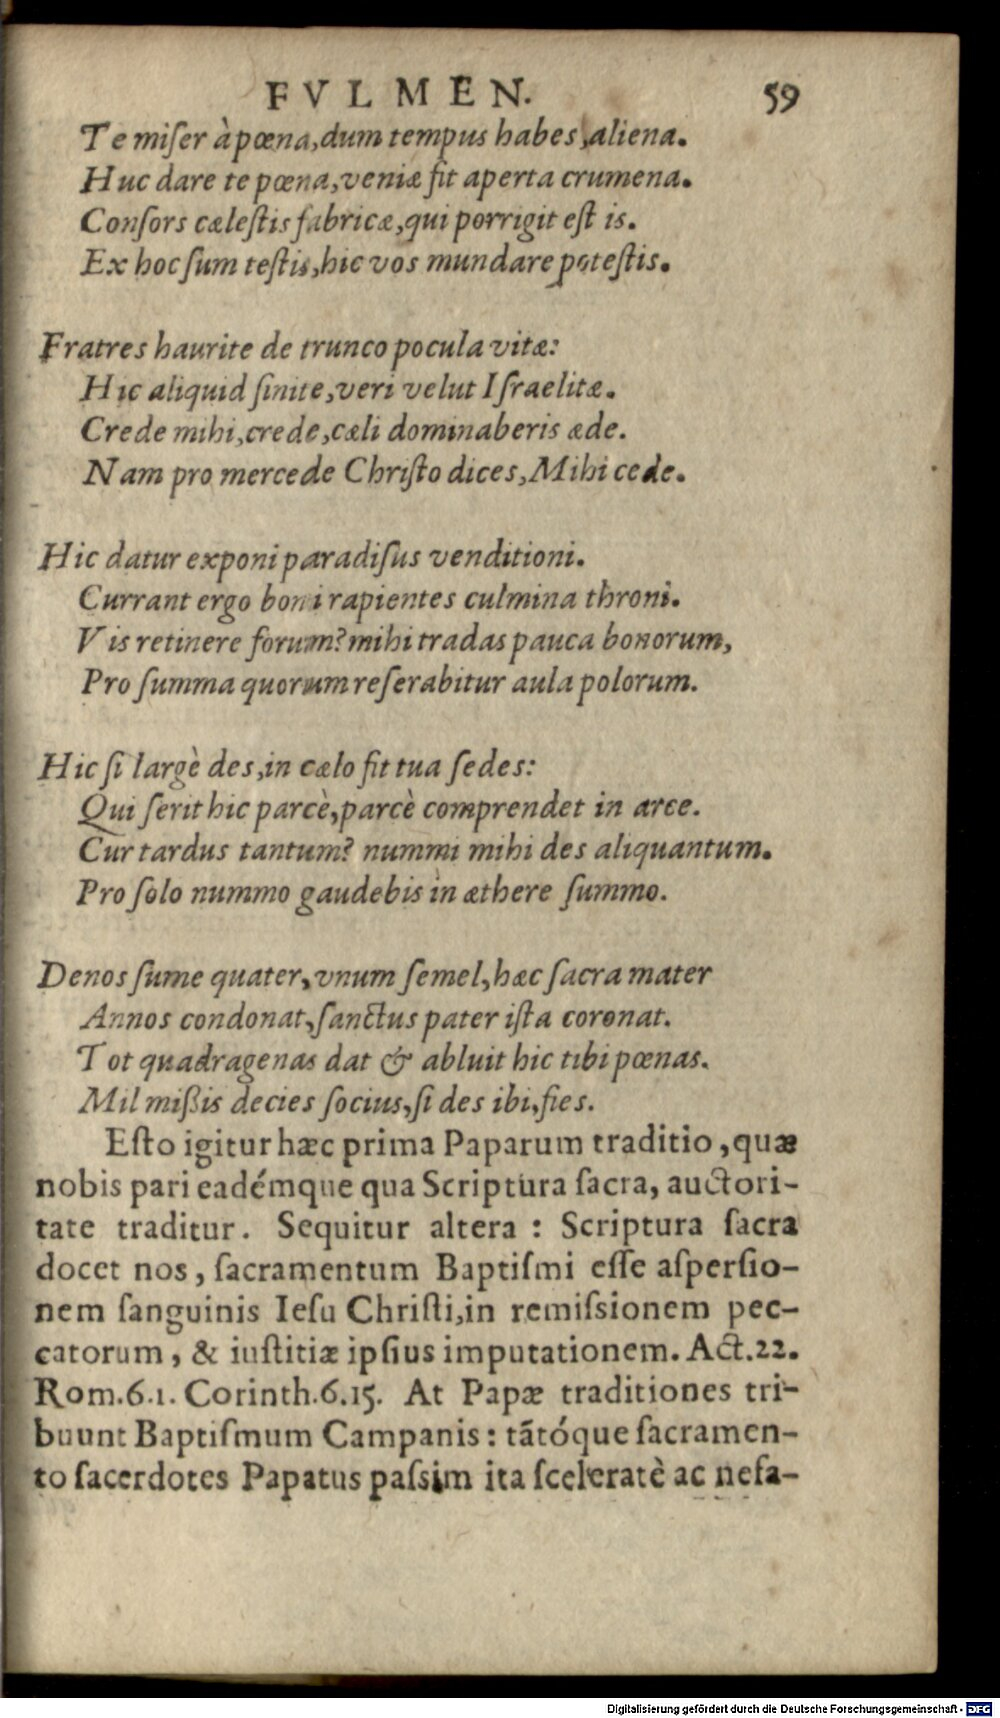 FVLMEN. 59
Te miſer à pœna, dum tempus habes, aliena.
Huc dare te pœna, veniæ fit aperta crumena.
Conſors cæleſtis fabricæ, qui porrigit eſt is.
Ex hoc ſum teſtis, hic vos mundare poteſtis.
Fratres haurite de trunco pocula vitæ:
Hic aliquid ſinite, veri velut Iſraelitæ.
Crede mihi, crede, cæli dominaberis æde.
Nam pro mercede Chriſto dices, Mihi cede.
Hic datur exponi paradiſus venditioni.
Currant ergo boni rapientes culmina throni.
Vis retinere forum? mihi tradas pauca bonorum,
Pro ſumma quorum reſerabitur aula polorum.
Hic ſi largè des, in cælo fit tua ſedes:
Qui ſerit hic parcè, parcè comprendet in arce.
Cur tardus tantum? nummi mihi des aliquantum.
Pro ſolo nummo gaudebis in æthere ſummo.
Denos ſume quater, vnum ſemel, hæc ſacra mater
Annos condonat, ſanctus pater iſta coronat.
Tot quadragenas dat & abluit hic tibi pœnas.
Mil mißis decies ſocius, ſi des ibi, fies.
Eſto igitur hæc prima Paparum traditio, quæ
nobis pari eadémque qua Scriptura ſacra, auctori-
tate traditur. Sequitur altera : Scriptura ſacra
docet nos, ſacramentum Baptiſmi eſſe aſperſio-
nem ſanguinis Ieſu Chriſti, in remiſsionem pec-
catorum, & iuſtitiæ ipſius imputationem. Act.22.
Rom.6.1. Corinth.6.15. At Papæ traditiones tri-
buunt Baptiſmum Campanis: tãtóque ſacramen-
to ſacerdotes Papatus paſsim ita ſceleratè ac nefa-
Digitalisierung gefördert durch die Deutsche Forschungsgemeinschaft - DFG